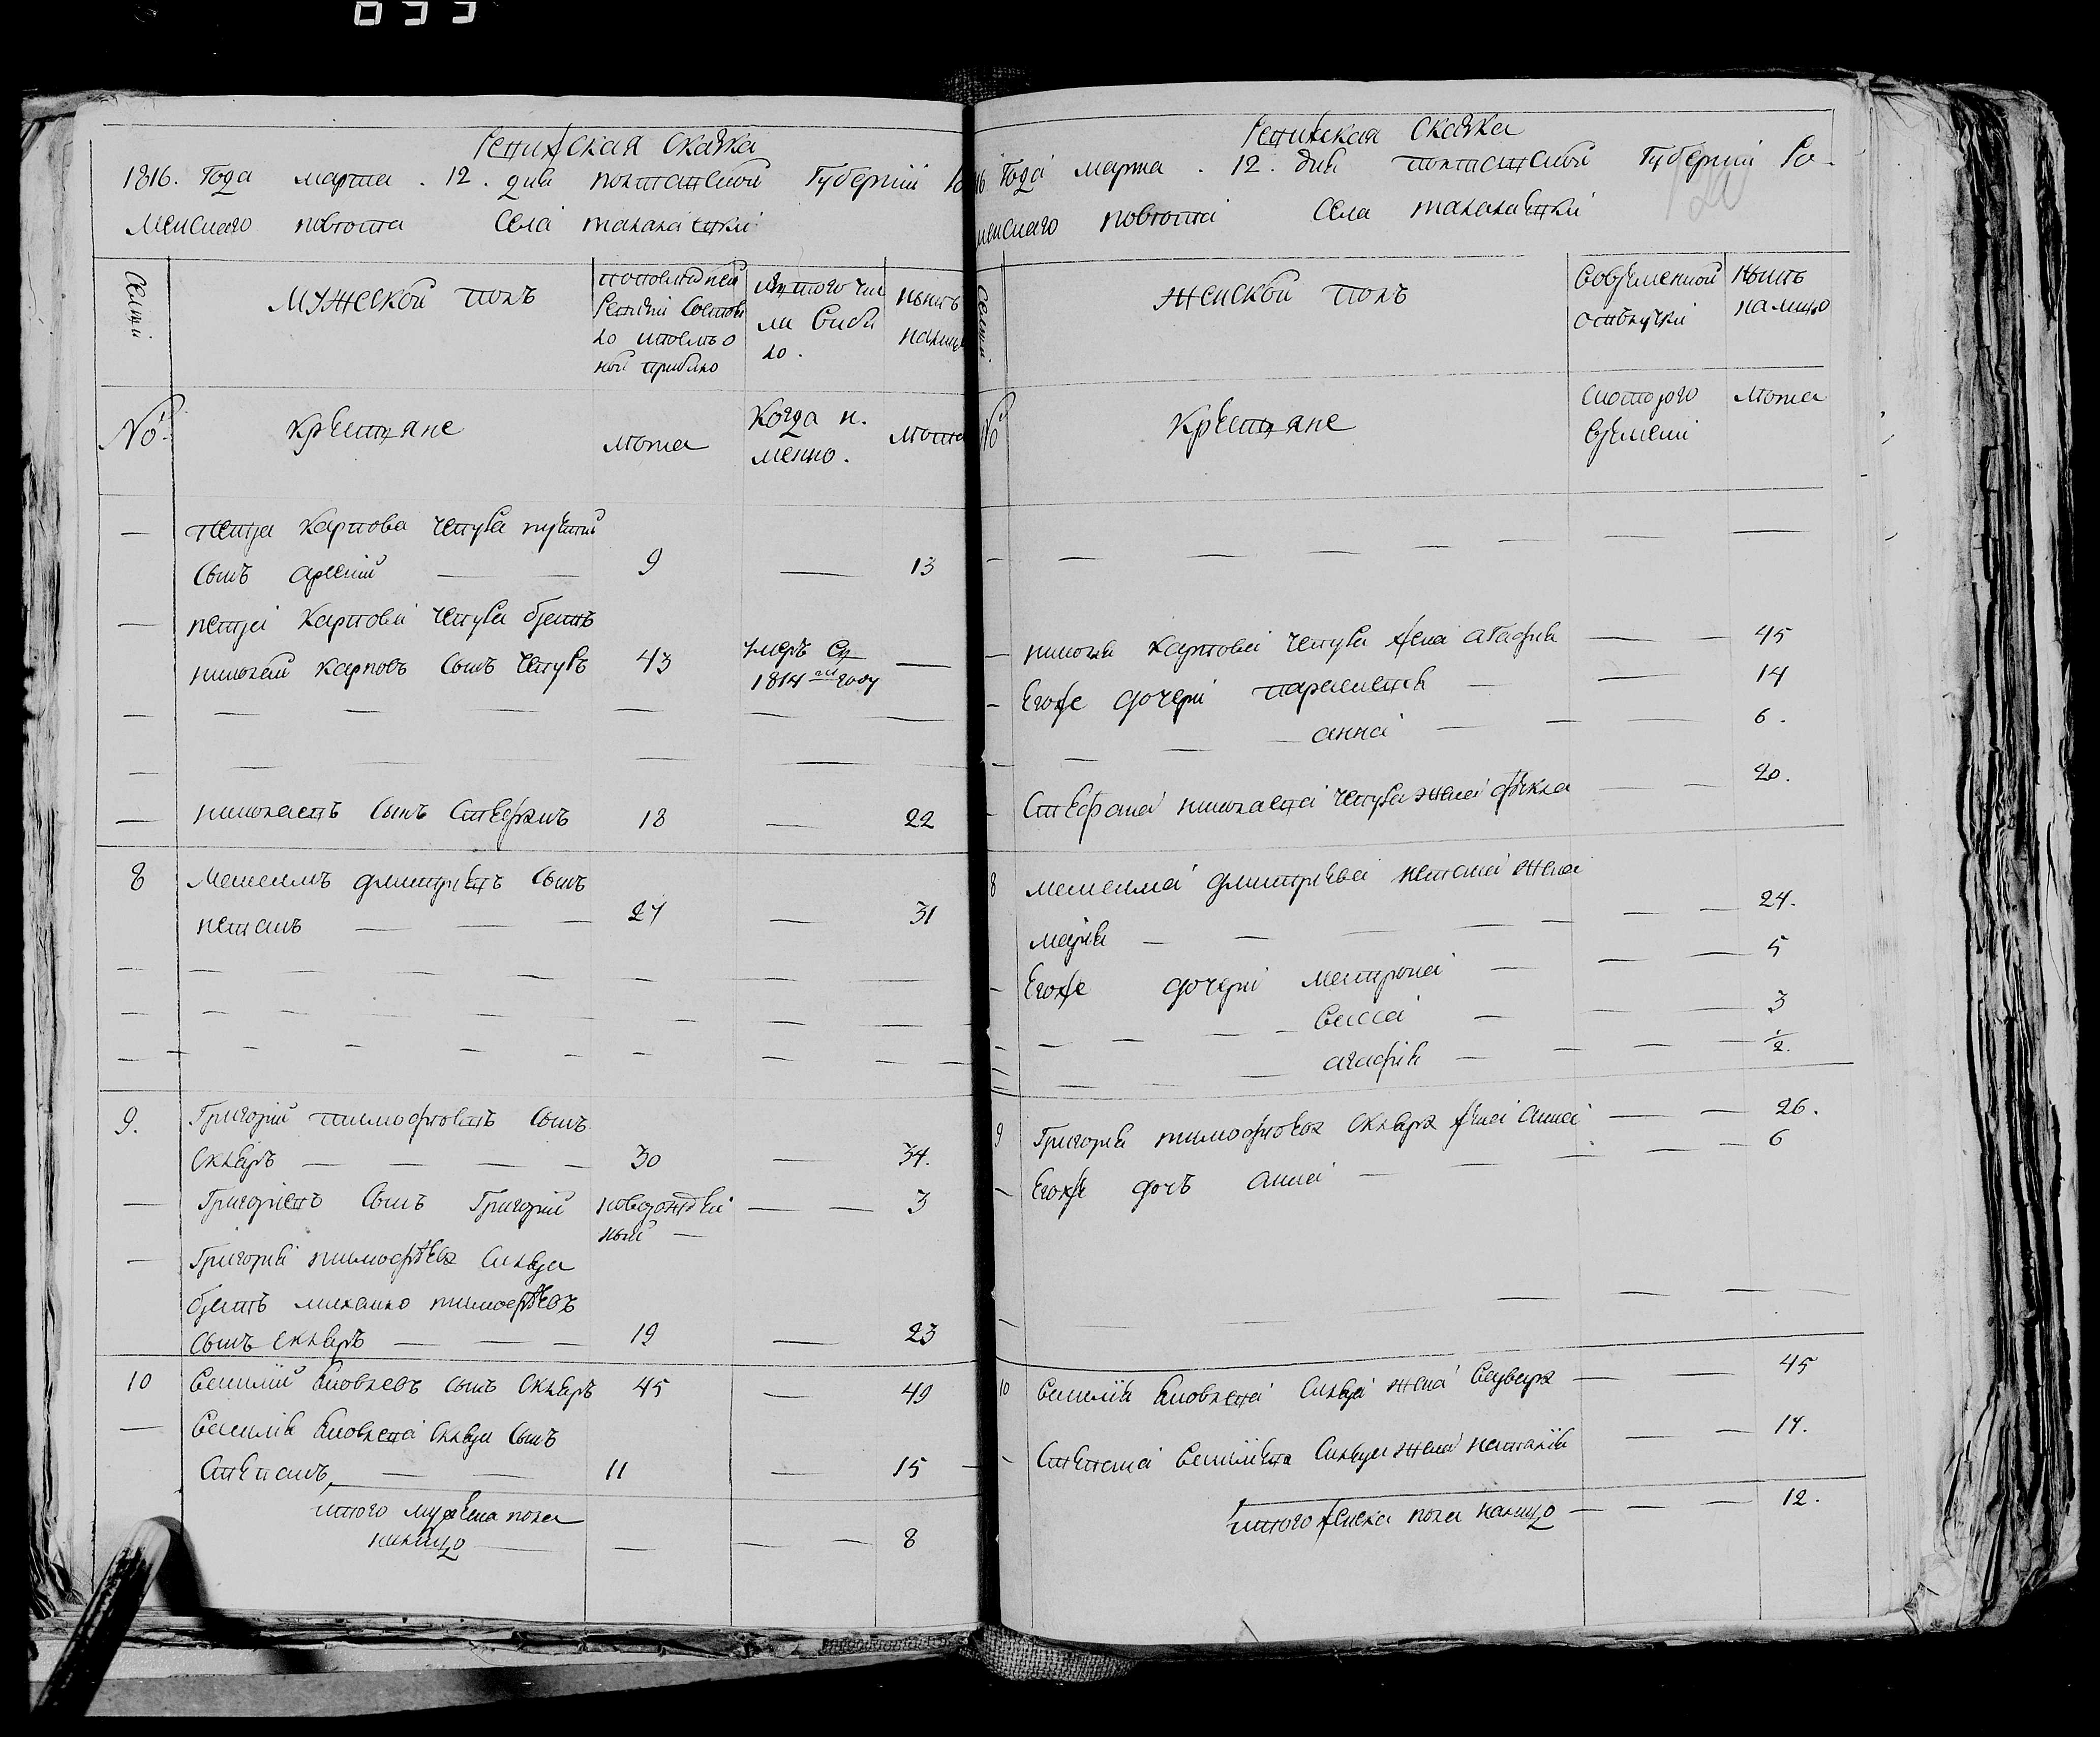 Ревижская сказка
1816. Года марта . 12 . дня полтавской Губерніи Ро
менскаго повѣта села талалаевки
Семьи
МУЖеской полъ
попослѣдней ревизіи состояло ипослѣ оной прибыло
изтого числа выбыло.
нынѣ налицо
№
крестяне
лѣта
Когда именно.
лѣта
петра Карпова чепура третій
сынъ арсеній 9 13
петра Карпова чепура братъ
николай карповъ сынъ чепуръ 43 умръ въ 1814м году
николаевъ сынъ Стефанъ 18 22
8 Максимъ дмитріевъ сынъ
27 31
9. Григорій тимофѣевъ сынъ
Скляръ 30 34.
Григоріевъ сынъ Григорій новорожденный 3
Григорія тимофѣева скляра
братъ михайло тимофѣевъ
сынъ скляръ 19 23
10 Василій яковлевъ сынъ скляръ 45 49
Василія яковлева скляра сынъ
Степанъ 11 15
итого мужеска пола
налицо 8
Ревижская сказка
16 Года марта . 12 . дня полтавской Губерніи Ро-
менскаго повѣта села талалаевки
Семьи.
женской полъ
Вовременной отлучки
нынѣ налицо
№
крестяне
скоторого времени
лѣта
николая карпова чепура жена агафия 45
Егоже дочери параскевия 14
анна 6.
Стефана николаева чепура жена фекла 20.
8 максима дмитріева жена
марія 24.
Егоже дочери матрона 5
васса 3
агафия 1/2.
9 Григорія тимофѣева скляра жена анна 26.
Егоже дочъ анна 6
10 василія яковлева скляра жена варвара 45
степана василіева скляра жена наталія 17.
итого женска пола налицо 12.